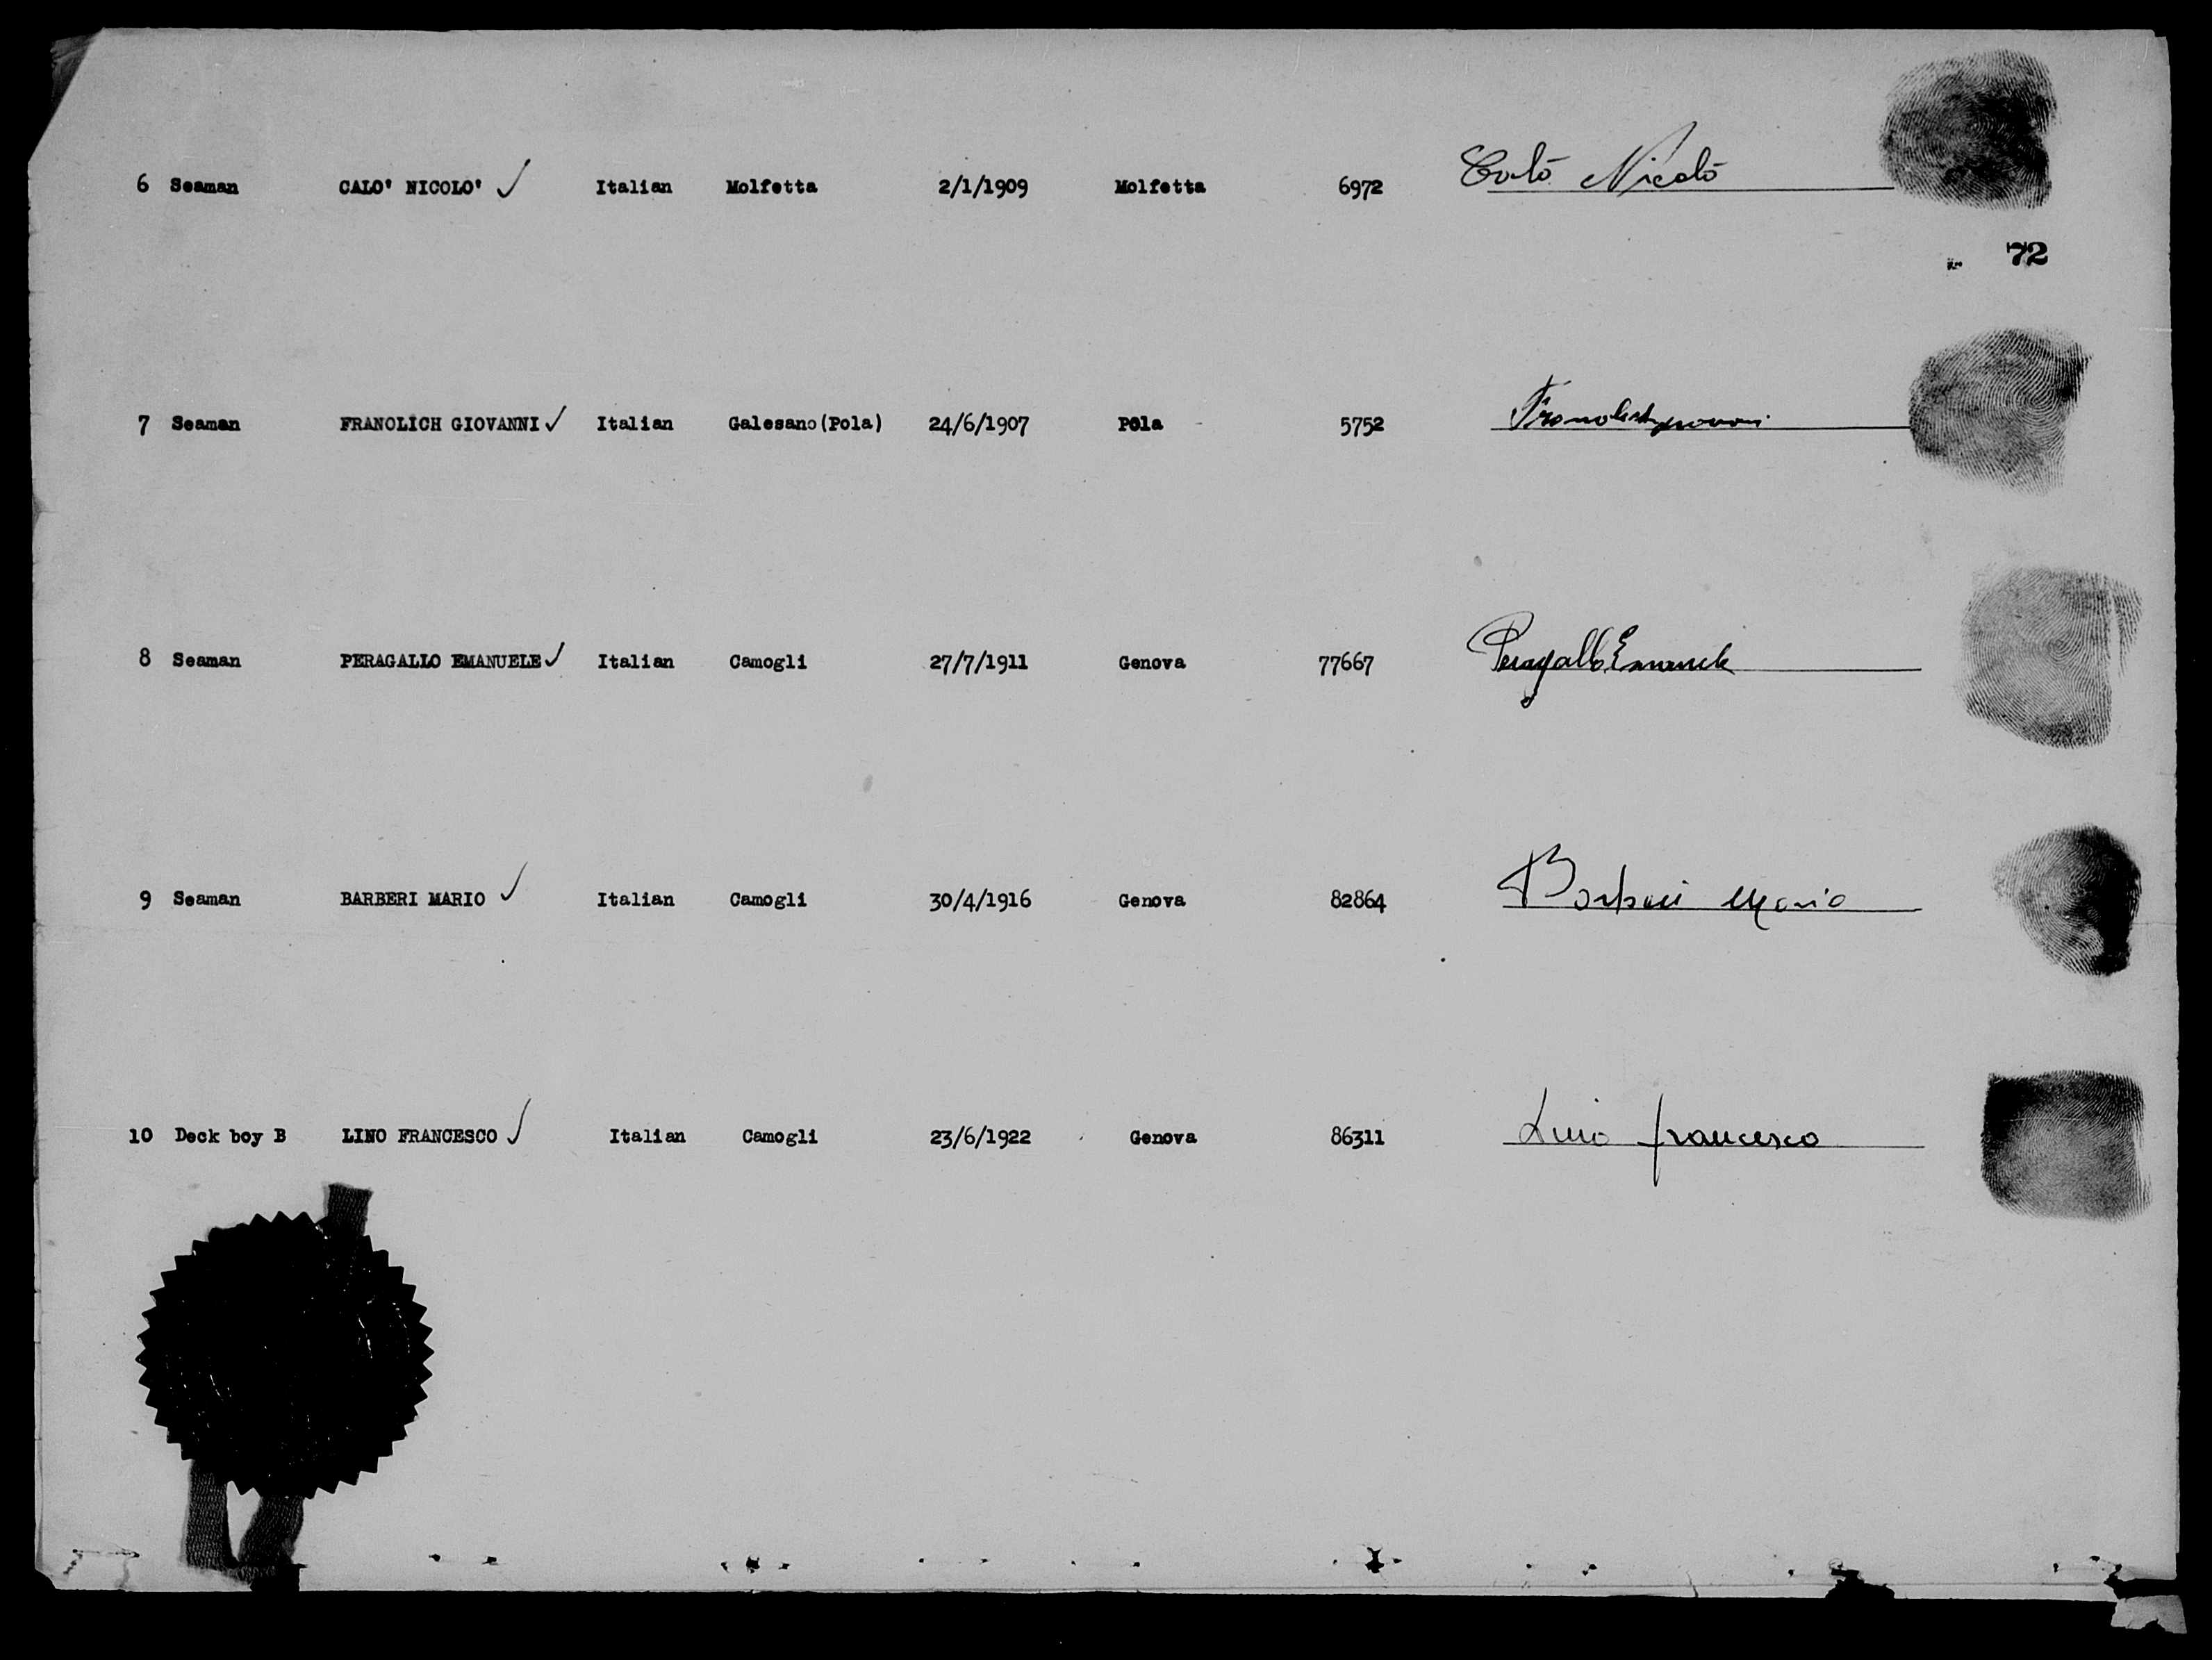 6 Seaman CALO' NICOLO' ✓ Italian Molfetta 2/1/1909 Molfetta 6972 Calò Nicolò
72
7 Seaman FRANOLICH GIOVANNI ✓ Italian Galesano(Pola) 24/6/1907 Pola 5752 Franolich Giovanni
8 Seaman PERAGALLO EMANUELE ✓ Italian Camogli 27/7/1911 Genova 77667 Peragallo Emanuele
9 Seaman BARBERI MARIO ✓ Italian Camogli 30/4/1916 Genova 82864 Barberi Mario
10 Deck boy B LINO FRANCESCO ✓ Italian Camogli 23/6/1922 Genova 86311 Lino francesco